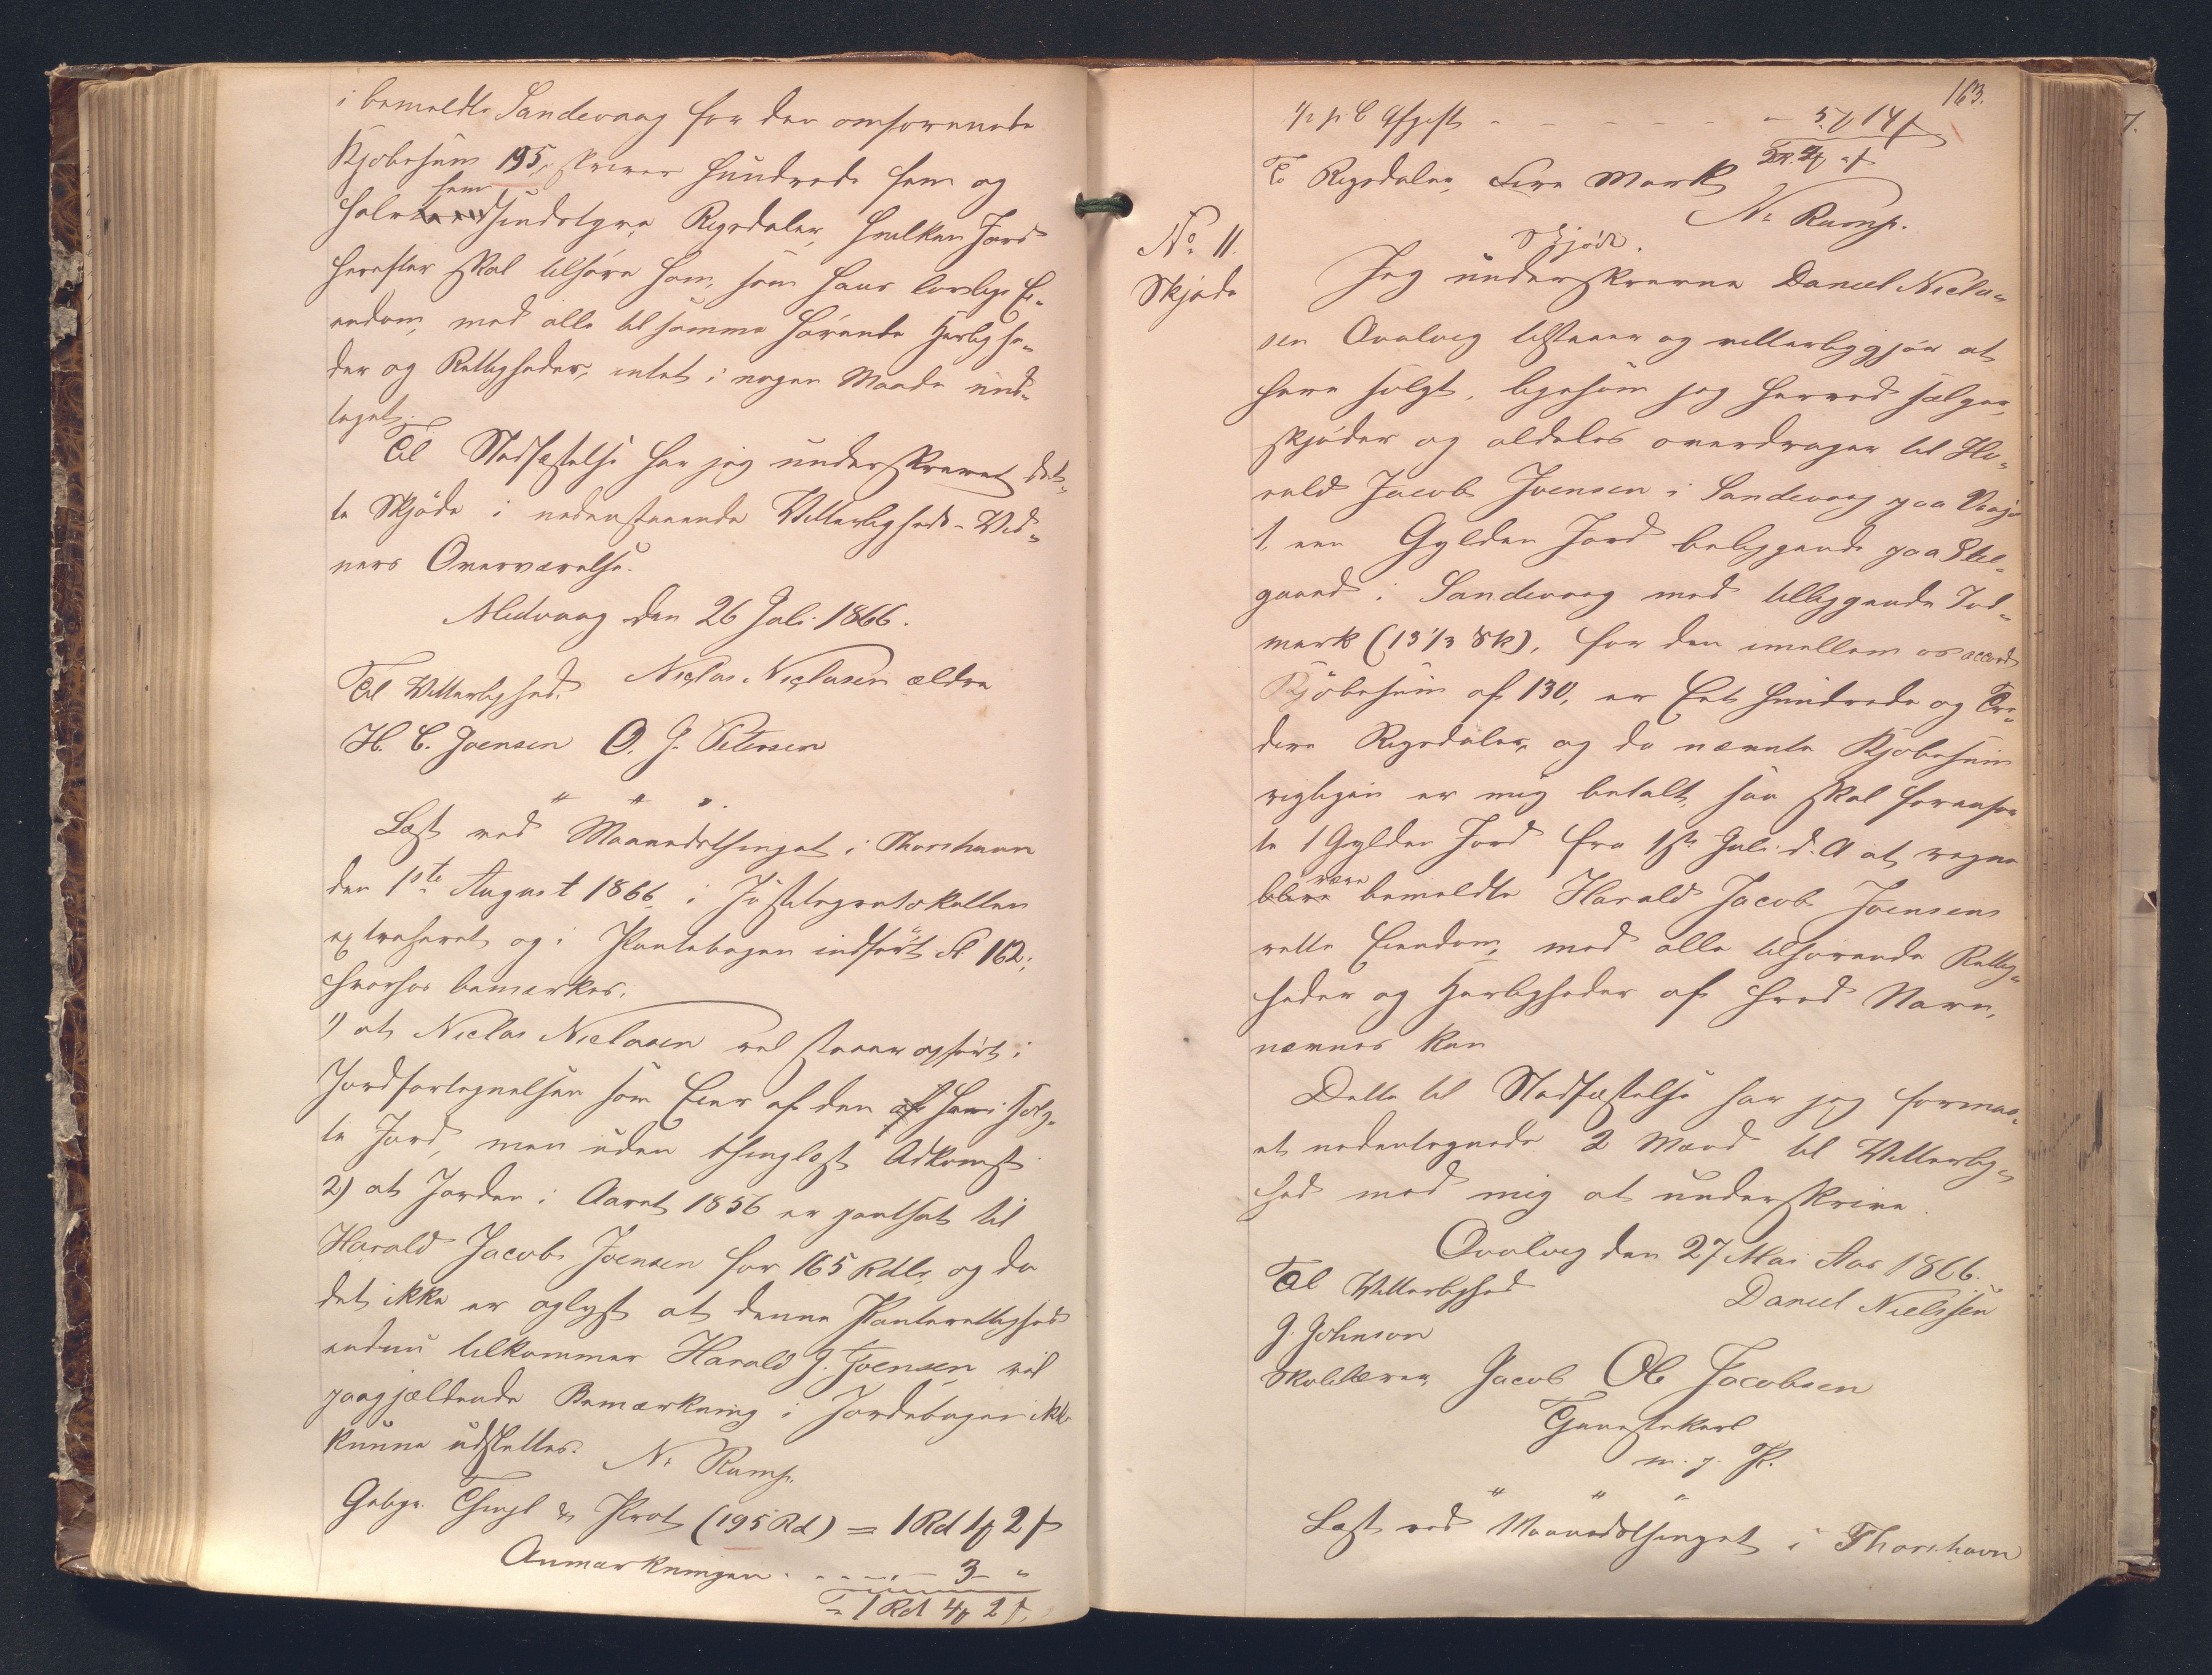 i bemeldte Sandevaag for den omforenede
Kjøbesum 195, skriver Hundrede fem og
fem
halvfemsindstyve Rigsdaler, hvilken Jord
herefter skal tilhøre ham, som hans lovlige Ei-
endom, med alle til samme hørende Herlighe-
der og Rettigheder, intet i nogen Maade und-
taget.
Til Stadfæstelse har jeg underskrevet det-
te Skjøde i nedenstaaende Vitterligheds-Vid-
ners Overværelse.
Midvaag den 26 Juli 1866.
Niclas Niclasen ældre
Til Vitterlighed:
H. C. Joensen O. J. Petersen
" " ".
Læst ved Maanedsthinget i Thorshavn
den 1ste August 1866, i Justitsprotokollen
extraheret og i Pantebogen indført Fol. 162;
hvorhos bemærkes,
1) at Niclas Niclasen vel staaer opført i
Jordfortegnelsen som Eier af den af ham solg-
te Jord, men uden thinglæst Adkomst
2) at Jorden i Aaret 1856 er pantsat til
Harald Jacob Joensen for 165 Rdlr, og da
det ikke er oplyst at denne Panterettighed
endnu tilkommer Harald J. Joensen, vil
paagjældende Bemærkning i Jordebogen ikke
kunne udslettes. N. Rump.
Gebyr. Thingl & Prot (195 Rd) = 1 Rd 1 ꝟ 2 ß
Anmærkningen . - - - - 3 - "
= 1 Rd 4 ꝟ 2 ß
163.
1/2 p. C Afgift - - - - - - - 5 ꝟ 14 ß
2 R. 4 ꝟ " ß
To Rigsdaler, Fire Mark
N. Rump.
No 11.
Skjøde
Skjøde.
Jeg underskrevne Daniel Nicla-
sen Qvalvig tilstaaer og vitterliggjør at
have solgt, ligesom jeg herved sælger,
skjøder og aldeles overdrager til Ha-
rald Jacob Joensen i Sandevaag paa Vaagø
1, een Gylden Jord beliggende paa Stel-
gaard i Sandevaag med tilliggende Ind-
mark (13 1/3 Sk), for den imellem os accord
Kjøbesum af 130, er Eet Hundrede og Tre-
dive Rigsdaler, og da nævnte Kjøbesum
rigtigen er mig betalt, saa skal foranfør-
te 1 Gylden Jord fra 1ste Juli d. A at regne
være
blive bemeldte Harald Jacob Joensens
rette Eiendom, med alle tilhørende Rettig-
heder og Herligheder af hvad Navn,
nævnes kan
Dette til Stadfæstelse har jeg formaa-
et nedentegnede 2 Mænd til Vitterlig-
hed med mig at underskrive.
Qvalvig den 27 Mai Aar 1866.
Til Vitterlighed
Daniel Nielssen
J. Johnson
Skolelærer, Jacob Ole Jacobsen
Tjenestekarl
m. f. P.
" " "
Læst ved Maanedsthinget i Thorshavn